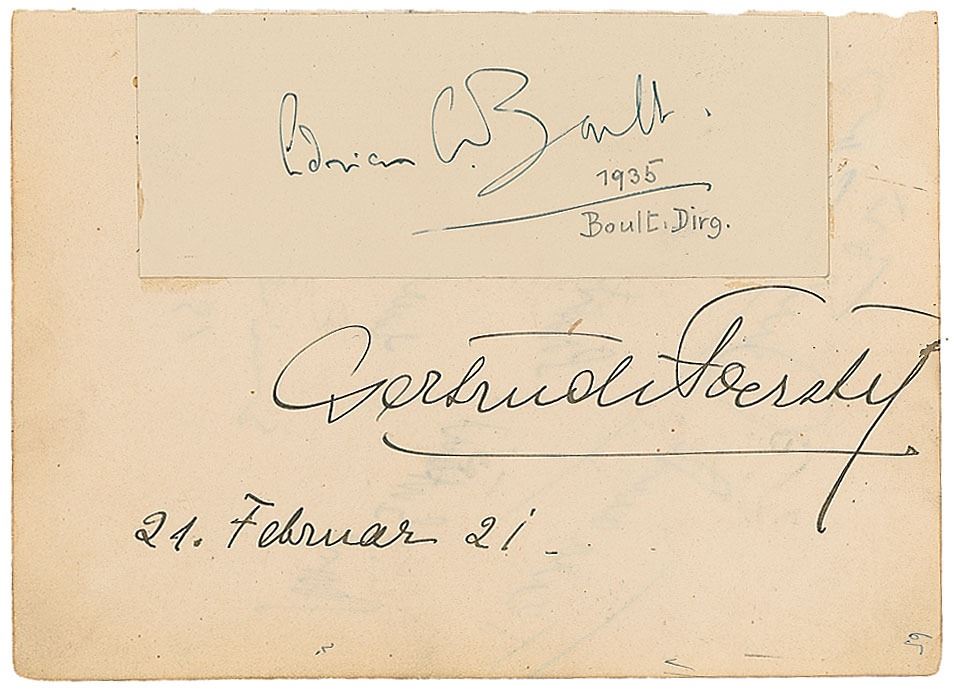 Adrian C. Boult.
1935
Boult. Dirg.
Gertrude Foerstel
21. Februar 21.
59